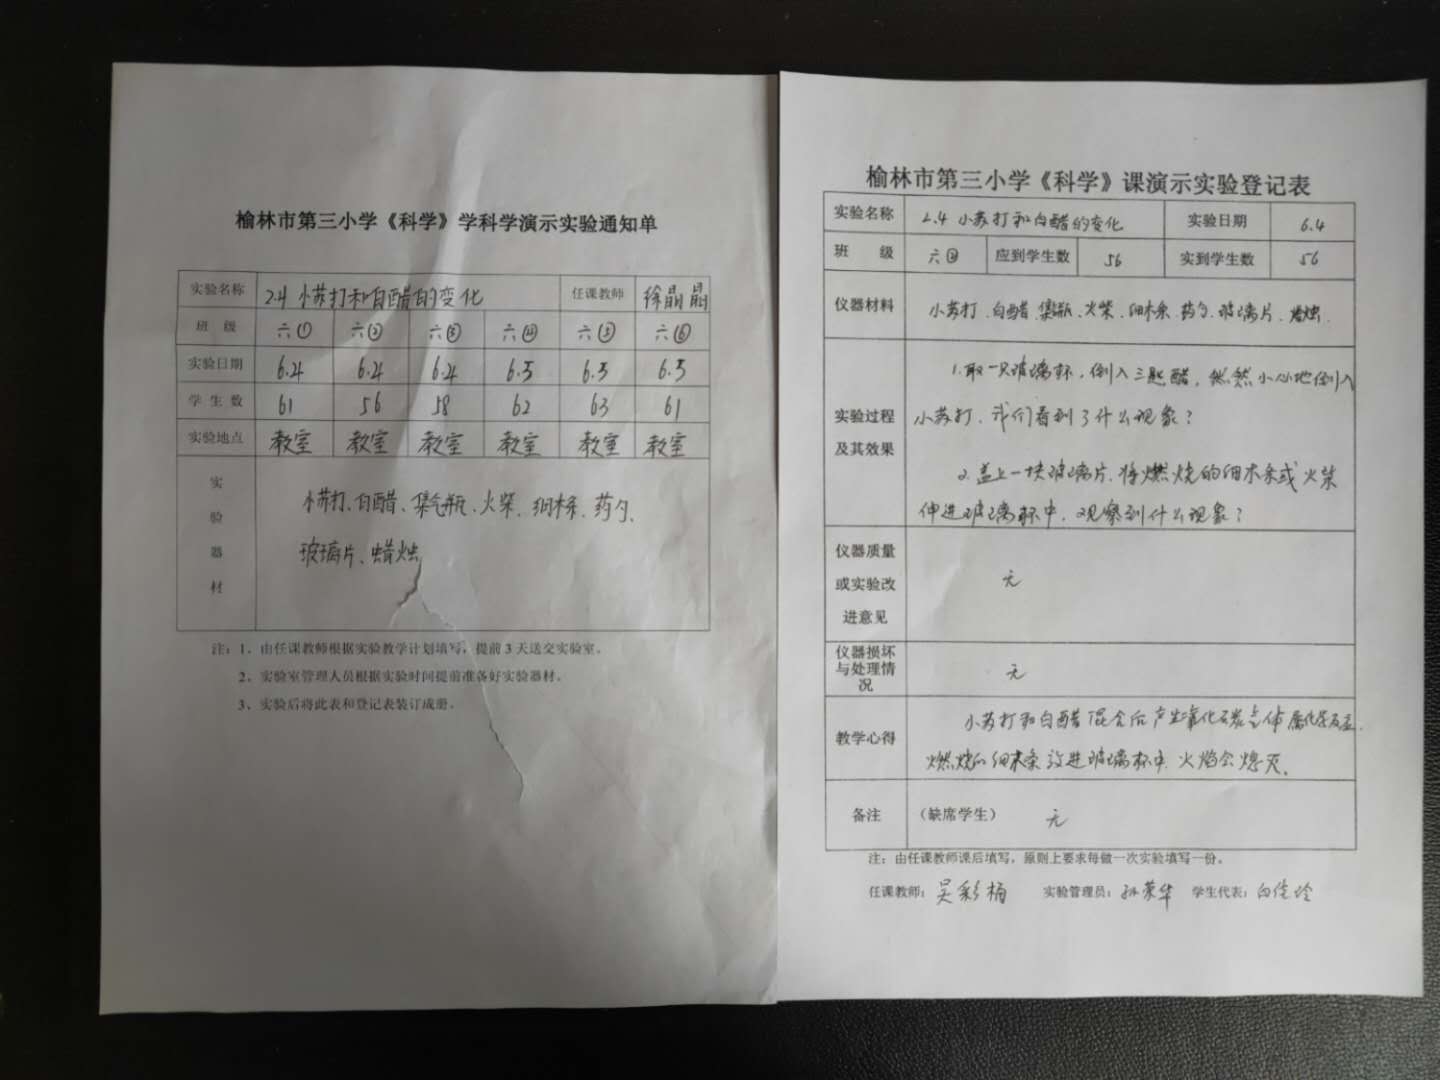 榆林市第三小学《科学》学科学演示实验通知单
实验名称 2.4 小苏打和白醋的变化 任课教师 徐晶晶
班 级 六① 六② 六③ 六④ 六⑤ 六⑥
实验日期 6.4 6.4 6.4 6.5 6.5 6.5
学 生 数 61 56 58 62 63 61
实验地点 教室 教室 教室 教室 教室 教室
实验器材 小苏打、白醋、集气瓶、火柴、细木条、药勺、
玻璃片、蜡烛
注：1、由任课教师根据实验教学计划填写，提前 3 天送交实验室。
2、实验室管理人员根据实验时间提前准备好实验器材。
3、实验后将此表和登记表装订成册。
榆林市第三小学《科学》课演示实验登记表
实验名称 2.4 小苏打和白醋的变化 实验日期 6.4
班 级 六② 应到学生数 56 实到学生数 56
仪器材料 小苏打、白醋、集瓶、火柴、细木条、药勺、玻璃片、蜡烛.
实验过程
及其效果
1.取一只玻璃杯，倒入三匙醋，然然小心地倒入
小苏打、我们看到了什么现象？
2.盖上一块玻璃片.将燃烧的细木条或火柴
伸进玻璃杯中，观察到什么现象？
仪器质量
或实验改
进意见
无
仪器损坏
与处理情
况
无
教学心得
小苏打和白醋混合后产生氧化碳气体属化学反应.
燃烧的细木条放进玻璃杯中.火焰会熄灭.
备注 （缺席学生） 无
注：由任课教师课后填写，原则上要求每做一次实验填写一份。
任课教师：吴彩梅 实验管理员：孙荣华 学生代表：白佳玲